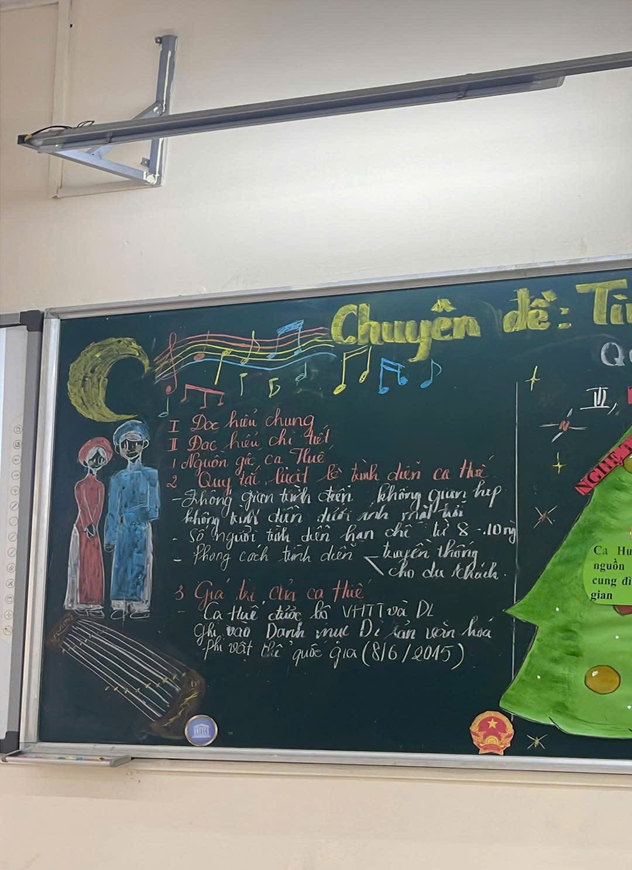 Chuyên đề: Tì
I Đọc hiểu chung
II Đọc hiểu chi tiết
1 Nguồn gốc ca Huế
2 Quy tắc, luật lệ trình diễn ca Huế
- Không gian trình diễn không gian hẹp
không trình diễn dưới ánh mặt trời
- Số người trình diễn hạn chế từ 8 - 10 ng
- Phong cách trình diễn < truyền thống
cho du khách.
3 Giá trị của ca Huế
- Ca Huế được bộ VHTT và DL
Ghi vào Danh mục Di sản văn hoá
phi vật thể quốc gia (8/6/2015)
III,
Ca Hu
nguồn
cung đì
gian